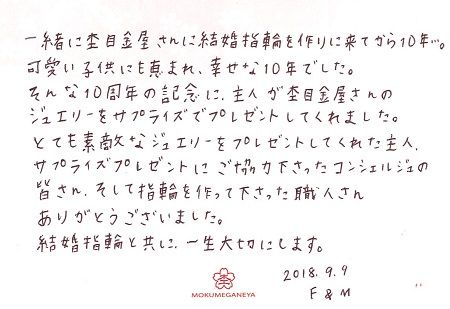 一緒に杢目金屋さんに結婚指輪を作りに来てから10年…。
可愛い子供にも恵まれ、幸せな10年でした。
そんな10周年の記念に、主人が杢目金屋さんの
ジュエリーをサプライズでプレゼントしてくれました。
とても素敵なジュエリーをプレゼントしてくれた主人、
サプライズプレゼントにご協力下さったコンシェルジュの
皆さん、そして指輪を作って下さった職人さん
ありがとうございました。
結婚指輪と共に、一生大切にします。
2018.9.9
F & M
MOKUMEGANEYA